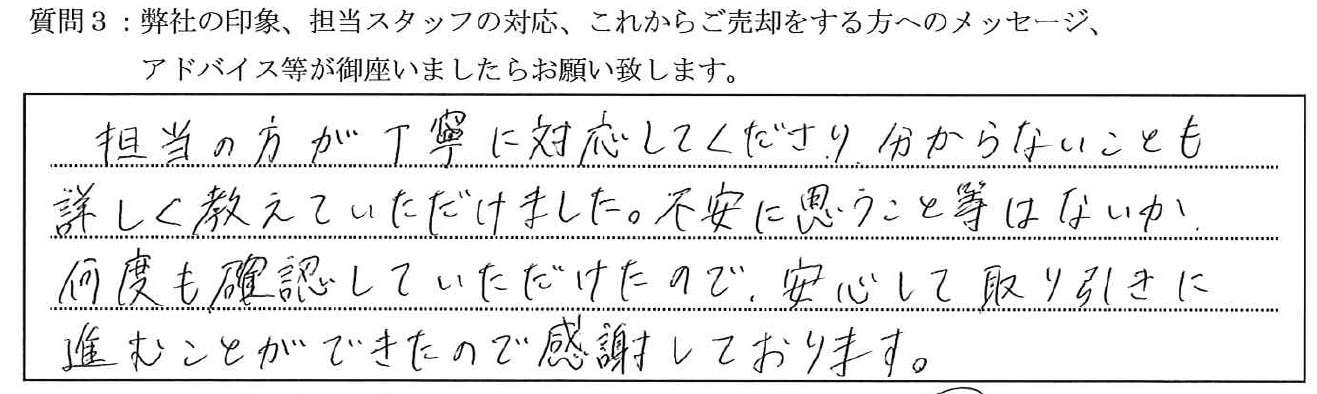 質問３：弊社の印象、担当スタッフの対応、これからご売却をする方へのメッセージ、
アドバイス等が御座いましたらお願い致します。
担当の方が丁寧に対応してくださり、分からないことも
詳しく教えていただけました。不安に思うこと等はないか、
何度も確認していただけたので、安心して取り引きに
進むことができたので感謝しております。